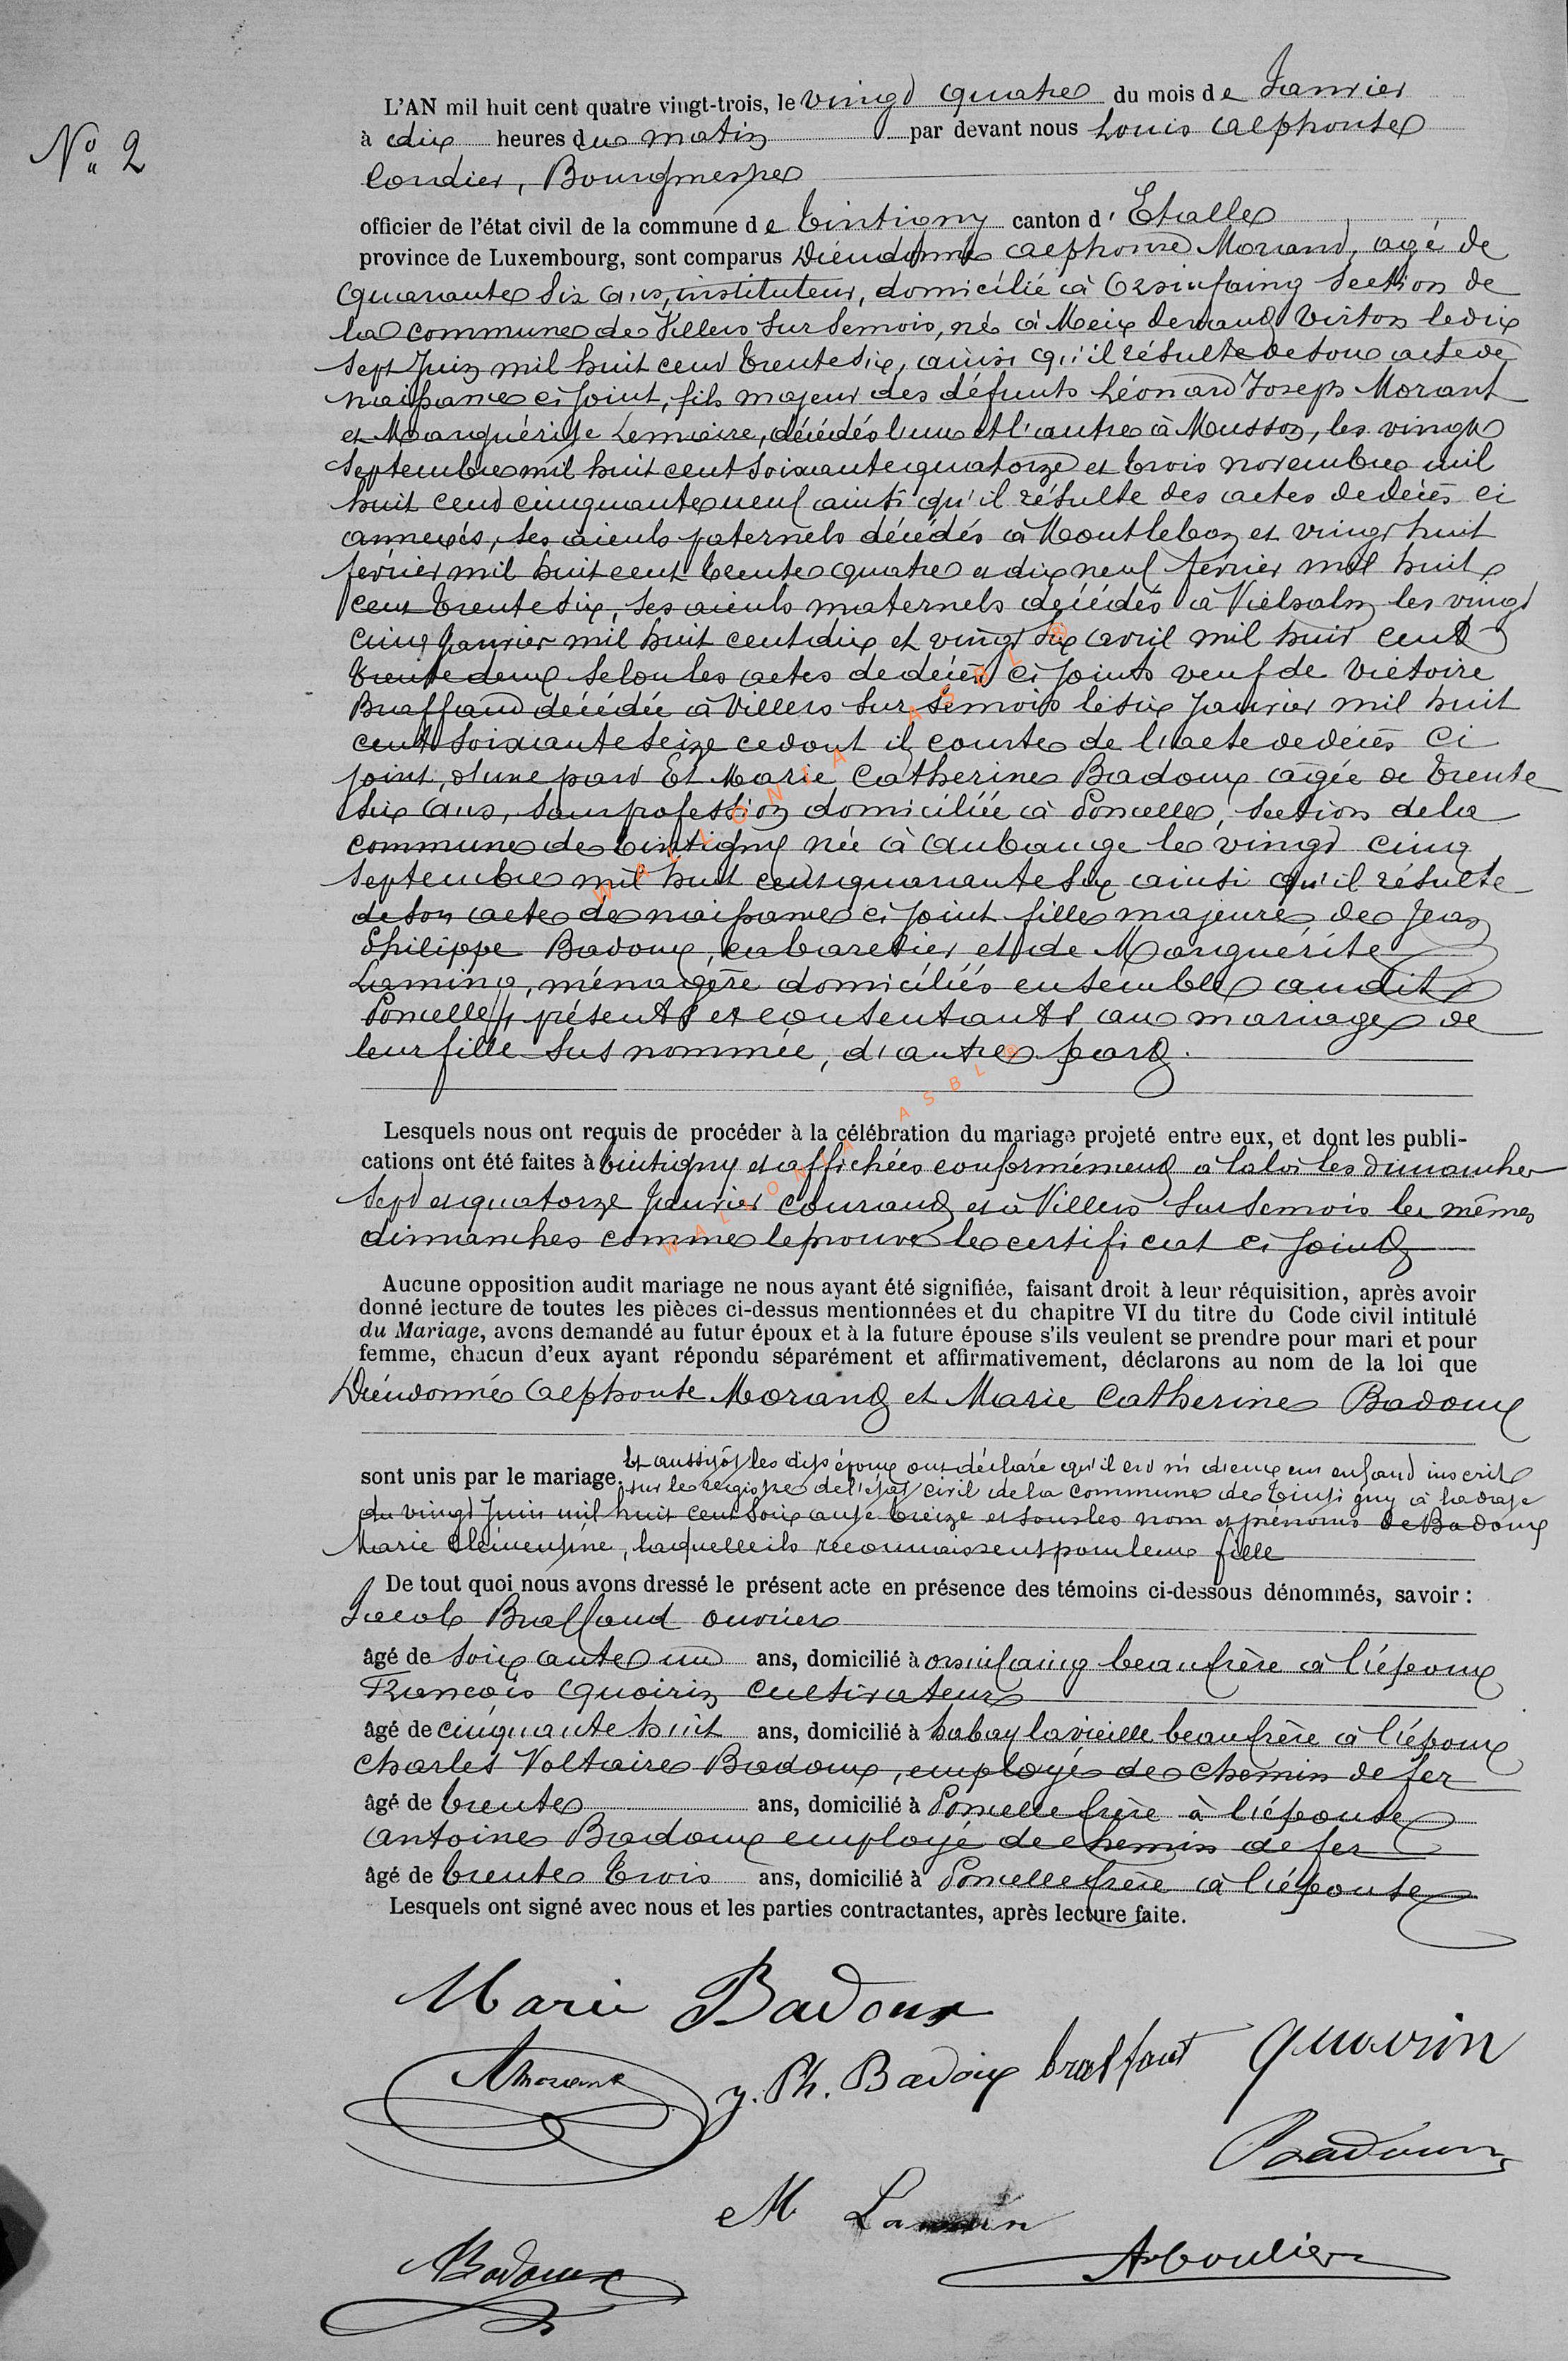 N° 2
L'AN mil huit cent quatre vingt-trois, le vingt quatre du mois de Janvier
à dix heures du matin par devant nous Louis Alphonse
Condier, Bourgmestre
officier de l'état civil de la commune de Tintigny canton d'Etalle
province de Luxembourg, sont comparus Diéudonné Alphonse Morand, agé de
quarante six ans, instituteur, domicilié à Orsinfaing section de
la commune de Villers sur Semois, né à Meix devant Virton le dix
sept Juin mil huit cent trente six, ainsi qu'il résulte de son acte de
naissance ci joint, fils majeur des défunts Léonard Joseph Morant
et Marguérite Lemaire, décédés l'un et l'autre à Musson, les vingt
septembre mil huit cent soixante quatorze et trois novembre mil
huit cent cinquante neuf ainsi qu'il résulte des actes de décès ci
annexés, ses aieuls paternels décédés à Montleban et vingt huit
février mil huit cent trente quatre et dix neuf février mil huit
cent trente six, ses aieuls maternels décédés à Vielsalm les vingt
cinq Janvier mil huit cent dix et vingt six avril mil huit cent
trente deux selon les actes de décès ci joints veuf de Victoire
Braffaud décédée à Villers sur Semois le six Janvier mil huit
cent soixante seize ce dont il conste de l'acte de décès ci
joint, d'une part Et Marie Catherine Badoux agée de trente
six ans, sans profession domiciliée à Poncelle, section de la
commune de Tintigny née à Aubange le vingt cinq
septembre mil huit cent quarante six ainsi qu'il résulte
de son acte de naissance ci joint fille majeure de Jean
Philippe Badoux, cabaretier et de Marguérite
Laming, ménagère domiciliés ensemble audit
Poncelle, présents et consentants au mariage de
leur fille sus nommée, d'autre part.
Lesquels nous ont requis de procéder à la célébration du mariage projeté entre eux, et dont les publi-
cations ont été faites à Tintigny et affichées conformément à la loi les dimanches
sept et quatorze Janvier courant et à Villers sur Semois les mêmes
dimanches comme le prouve le certificat ci joint
Aucune opposition audit mariage ne nous ayant été signifiée, faisant droit à leur réquisition, après avoir
donné lecture de toutes les pièces ci-dessus mentionnées et du chapitre VI du titre du Code civil intitulé
du Mariage, avons demandé au futur époux et à la future épouse s'ils veulent se prendre pour mari et pour
femme, chacun d'eux ayant répondu séparément et affirmativement, déclarons au nom de la loi que
Diéudonné Alphonse Morand et Marie Catherine Badoux
sont unis par le mariage. Et aussitôt les dits époux ont déclaré qu'il est né d'eux un enfant inscrit
sur le registre de l'état civil de la commune de Tintigny à la date
du vingt Juin mil huit cent soixante treize et sous les nom et prénoms de Badoux
Marie Clémentine, laquelle ils reconnaissent pour leur fille
De tout quoi nous avons dressé le présent acte en présence des témoins ci-dessous dénommés, savoir :
Jacob Bralfaud ouvrier
âgé de soixante un ans, domicilié à orsinfaing beaufrère à l'époux
François Quoirin Cultivateur
âgé de cinquante huit ans, domicilié à habay la vieille beaufrère à l'époux
Charles Voltaire Badoux, employé de chemin de fer
âgé de trente ans, domicilié à Poncelle frère à l'épouse
Antoine Badoux employé de chemin de fer
âgé de trente trois ans, domicilié à Poncelle frère à l'épouse
Lesquels ont signé avec nous et les parties contractantes, après lecture faite.
Marie Badoux
AMorant J. Ph. Badoux bralfaut Quoirin
Badoux
M Lamin
Badoux
WALLONIA ASBL ®
WALLONIA ASBL ®